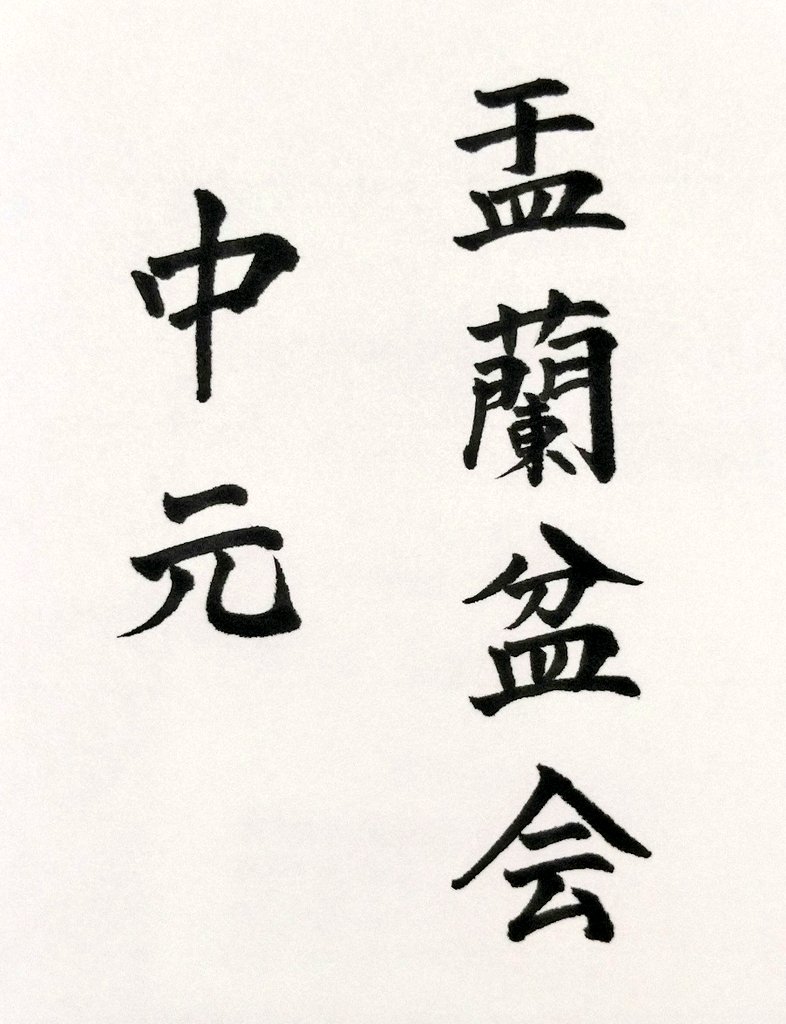 盂蘭盆会
中元